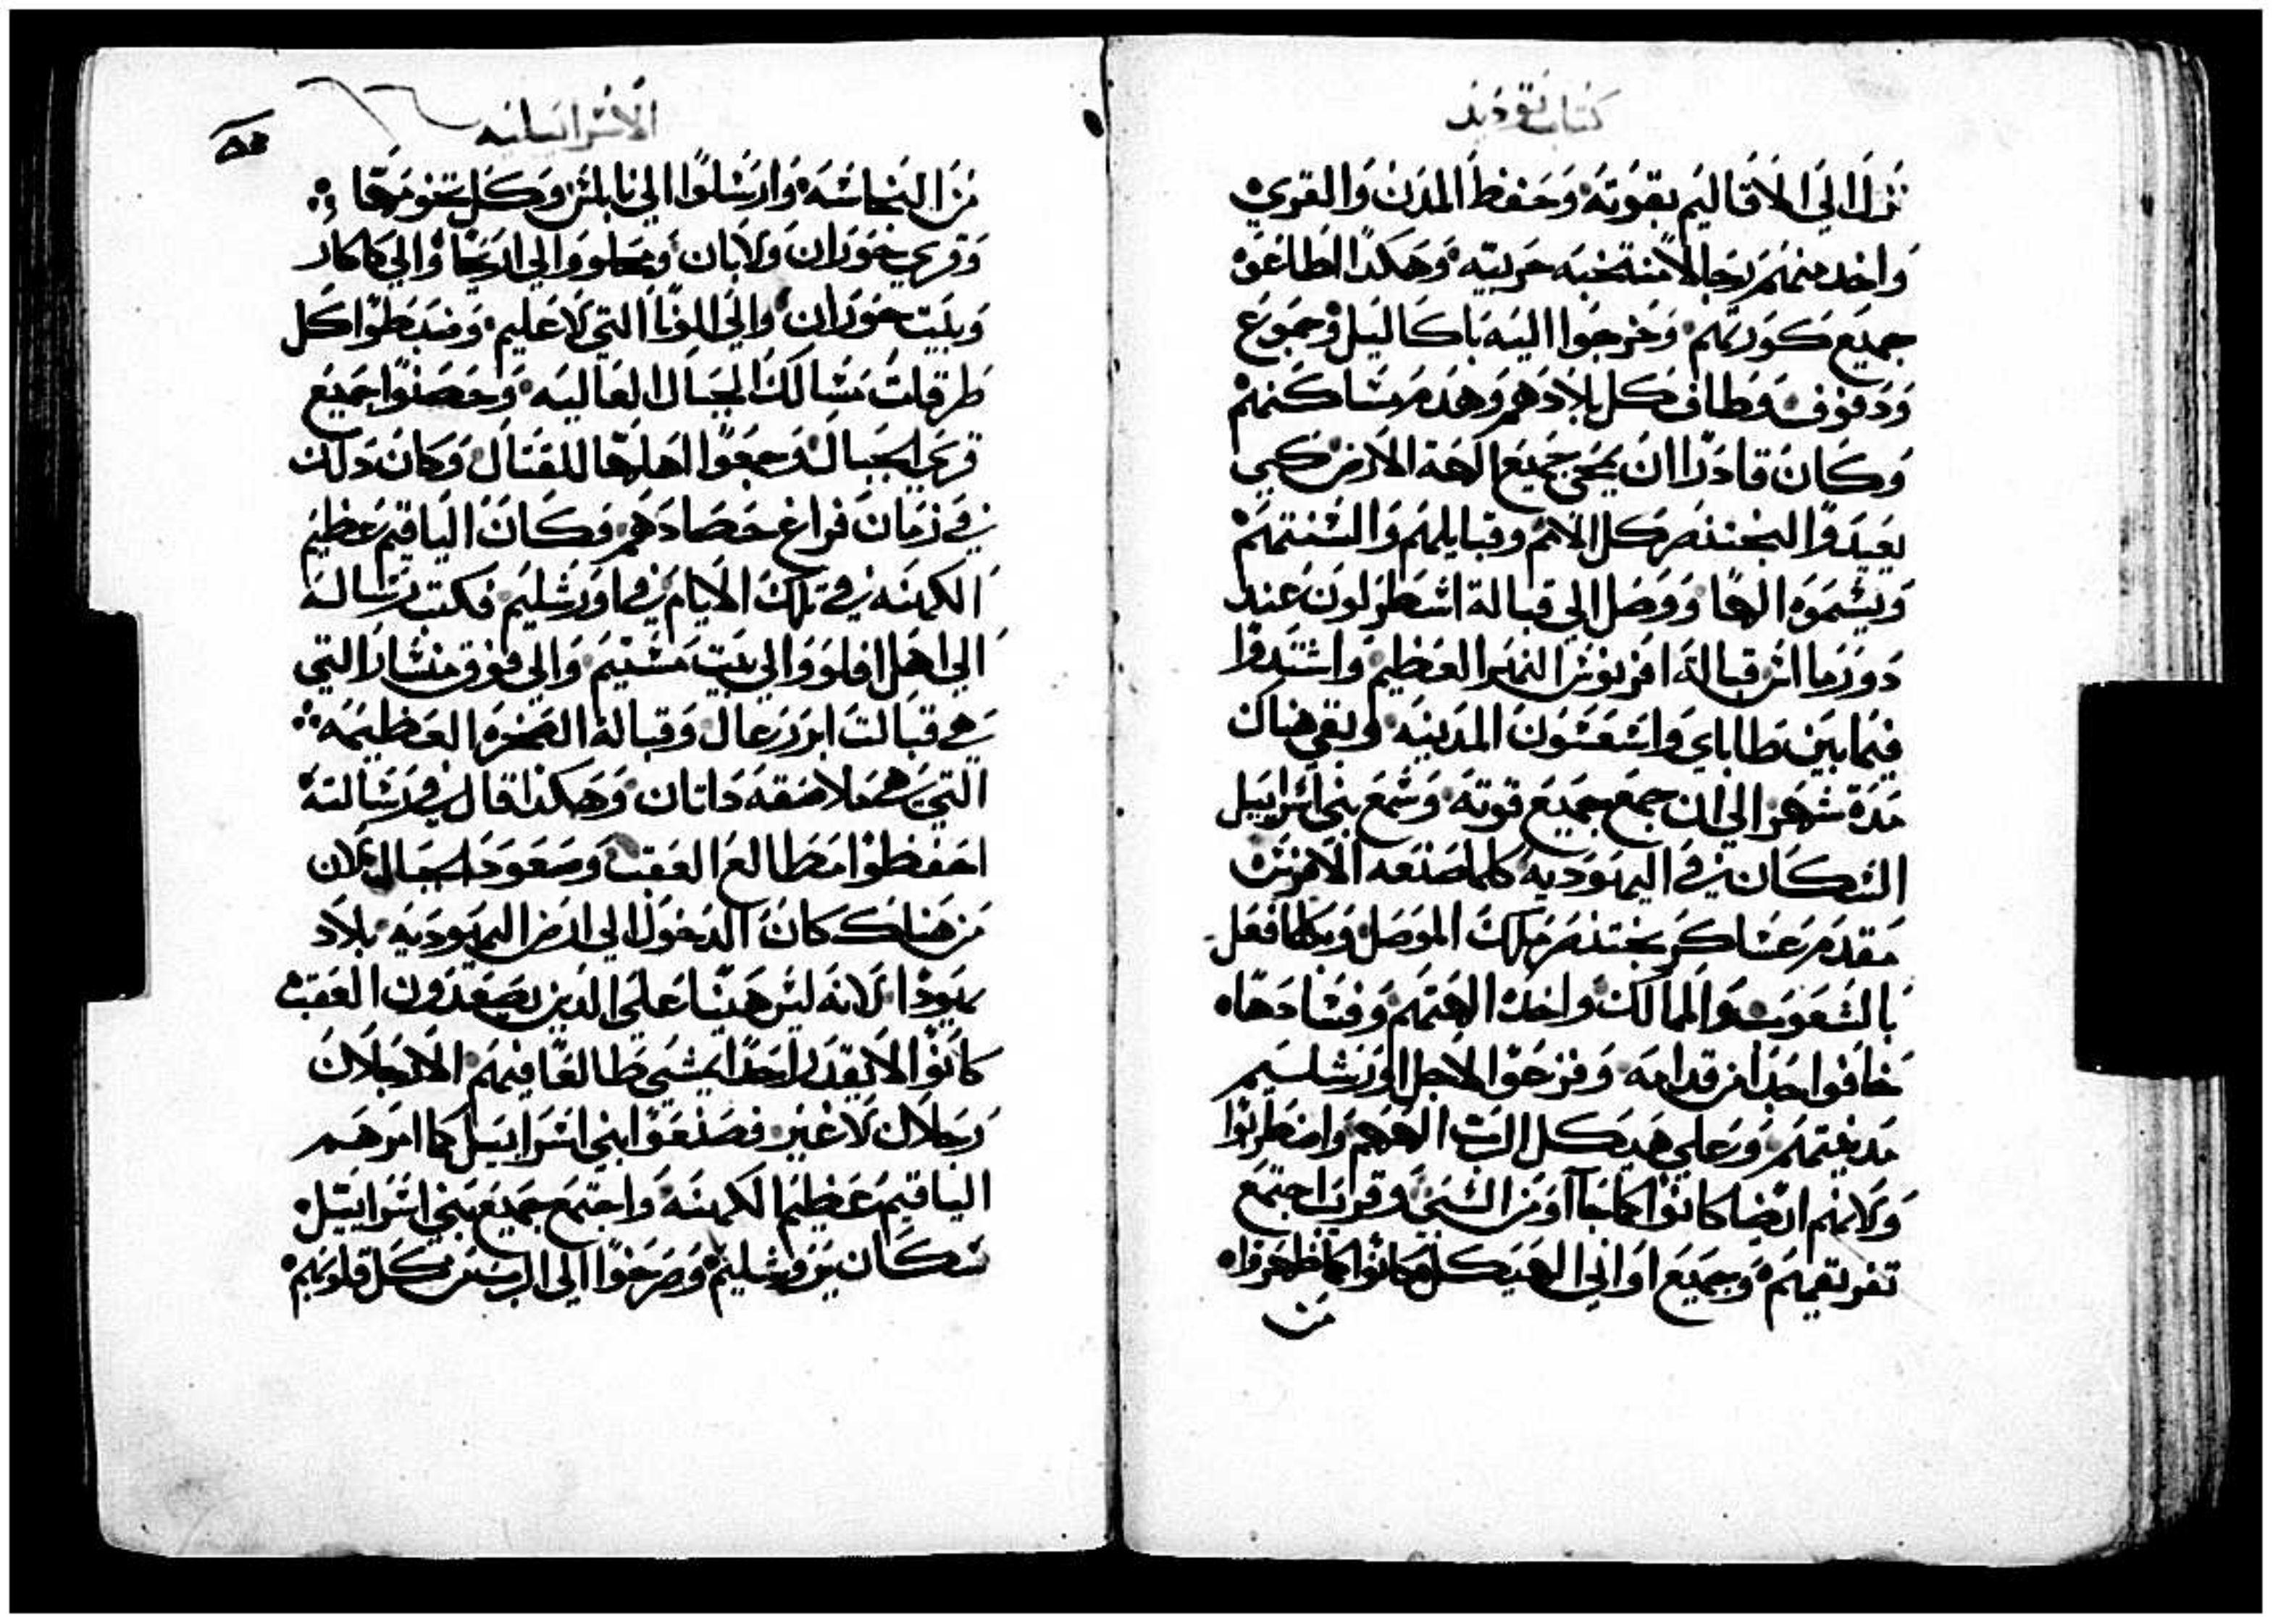 كتاب يوديد
نزل الي الاقاليم بقوته وحفظ المدن والقري
واخد منهم رجالا منتخبه حربيه وهكدا اطاعوه
جميع كورتهم وخرجوا اليه باكاليل وجموع
ودفوف وطاف كل بلادهم وهدم مساكنهم
وكان قادرا ان يمحي جميع الهة الارض كي
يعبدوا لبختنصر كل الامم وقبايلهم والسنتهم
ويسموه الها ووصل الي قبالة اسطرلون عند
دورما اثر قبالة افريوس النهر العظيم واستدوا
فيما بين طاباي واسعسون المدينه وبقي هناك
مدة شهر الي ان جمع جميع قوته وسمع بني اسراييل
السكان في اليهوديه كلما صنعه الافرنس
مقدم عساكر بختنصر ملك الموصل وبكلما فعل
بالشعوب والممالك واخد الهتهم وفسادها
خافوا جدا من قدامه وفزعوا لاجل اورشليم
مدينتهم وعلي هيكل الرب الههم واضطربوا
ولانهم ايضا كانوا كما جاآو من السبي وقرب اجتمع
تفريقهم وجميع اواني الهيكل كانوا كما طهروا
من
الاسراييليه
من النجاسه وارسلوا الي نابلس وكل تخومها
وقري حوران ولابان ومحلوو والي اريحا والي كاكار
وبيت حوران والي الونا التي لاعليم وضبطوا كل
طرقات مسالك الجبال العاليه وحصنوا جميع
قري الجبال وجمعوا اهلها للقتال وكان دلك
في زمان فراغ حصادهم وكان الياقيم عظيم
الكهنه في تلك الايام في اورشليم فكتب رساله
الي اهل افلوو والي بيت مستيم والي فوق منسارا التي
هي قبالت ابرزرعال وقبالة الصخره العظيمه
التي هي ملاصقه داتان وهكدا قال في رسالته
احفظوا مطالع العقب وصعود الجبال لان
من هناك كان الدخول الي ارض اليهوديه بلاد
يهودا لانه ليس هينا علي الدين يصعدون العقب
كانوا لا يقدر احدا يمشي طالعا فيهم الا رجلان
رجلان لا غير فصنعوا بني اسراييل كما امرهم
الياقيم عظيم الكهنه واجتمع جميع بني اسراييل
سكان يروشليم وصرخوا الي الرب من كل قلوبهم